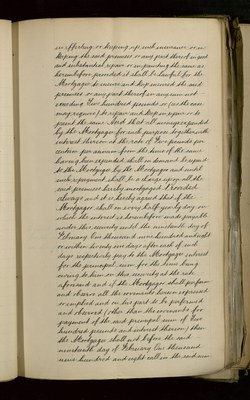 in effecting or keeping up such insurance or in
keeping the said premises or any part thereof in good
and substantial repair or in painting the same as
hereinbefore provided it shall be lawful for the
Mortgagee to insure and keep insured the said
premises or any part thereof in any sum not
exceeding Five hundred pounds or (as the case
may require) to repair and keep in repair or to
paint the same And that all moneys expended
by the Mortgagee for such purpose together with
interest thereon at the rate of Five pounds per
centum per annum from the time of the same
having been expended shall on demand be repaid
to the Mortgagee by the Mortgagor and until
such repayment shall be a charge upon all the
said premises hereby mortgaged Provided
always and it is hereby agreed that if the
Mortgagor shall on every half yearly day on
which the interest is hereinbefore made payable
under this security until the nineteenth day of
February One thousand nine hundred and eight
or within twenty one days after each of such
days respectively pay to the Mortgagee interest
for the principal sum for the time being
owing to him on this security at the rate
aforesaid and if the Mortgagor shall perform
and observe all the covenants herein expressed
or implied and on his part to be performed
and observed (other than the covenants for
payment of the said principal sum of Five
hundred pounds and interest thereon) then
the Mortgagee shall not before the said
nineteenth day of February One thousand
nine hundred and eight call in the said sum